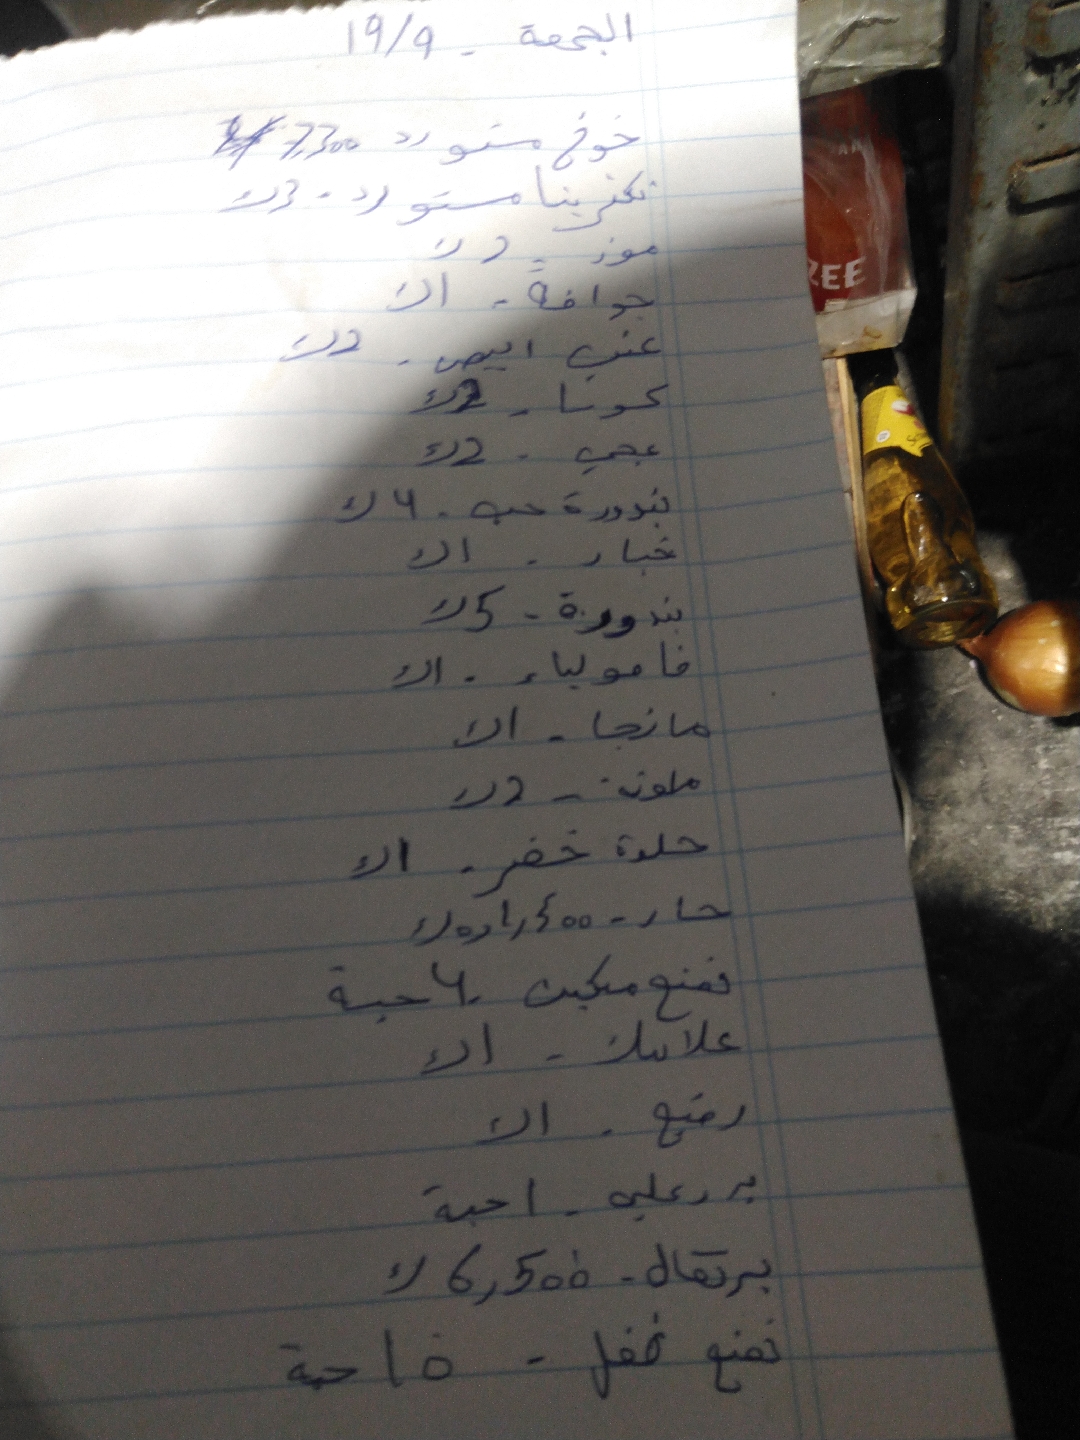 الجمعة - 19/9
خوخ مستورد 7,300
نكترينا مستورد - 3 ك
موز - 2 ك
جوافة - 1 ك
عنب ابيض - 2 ك
كوسا - 2 ك
عجمي - 2 ك
بندورة حب - 4 ك
خيار - 1 ك
بندورة - 5 ك
فاصولياء - 1 ك
مانجا - 1 ك
ملونة - 2 ك
حلوة خضر - 1 ك
حار - 1,500 ك
نعنع مكبس - 4 حبة
1 ك
رفيع - 1 ك
1 حبة
برتقال - 6,500 ك
نعنع فلفل - 10 حبة
ZEE